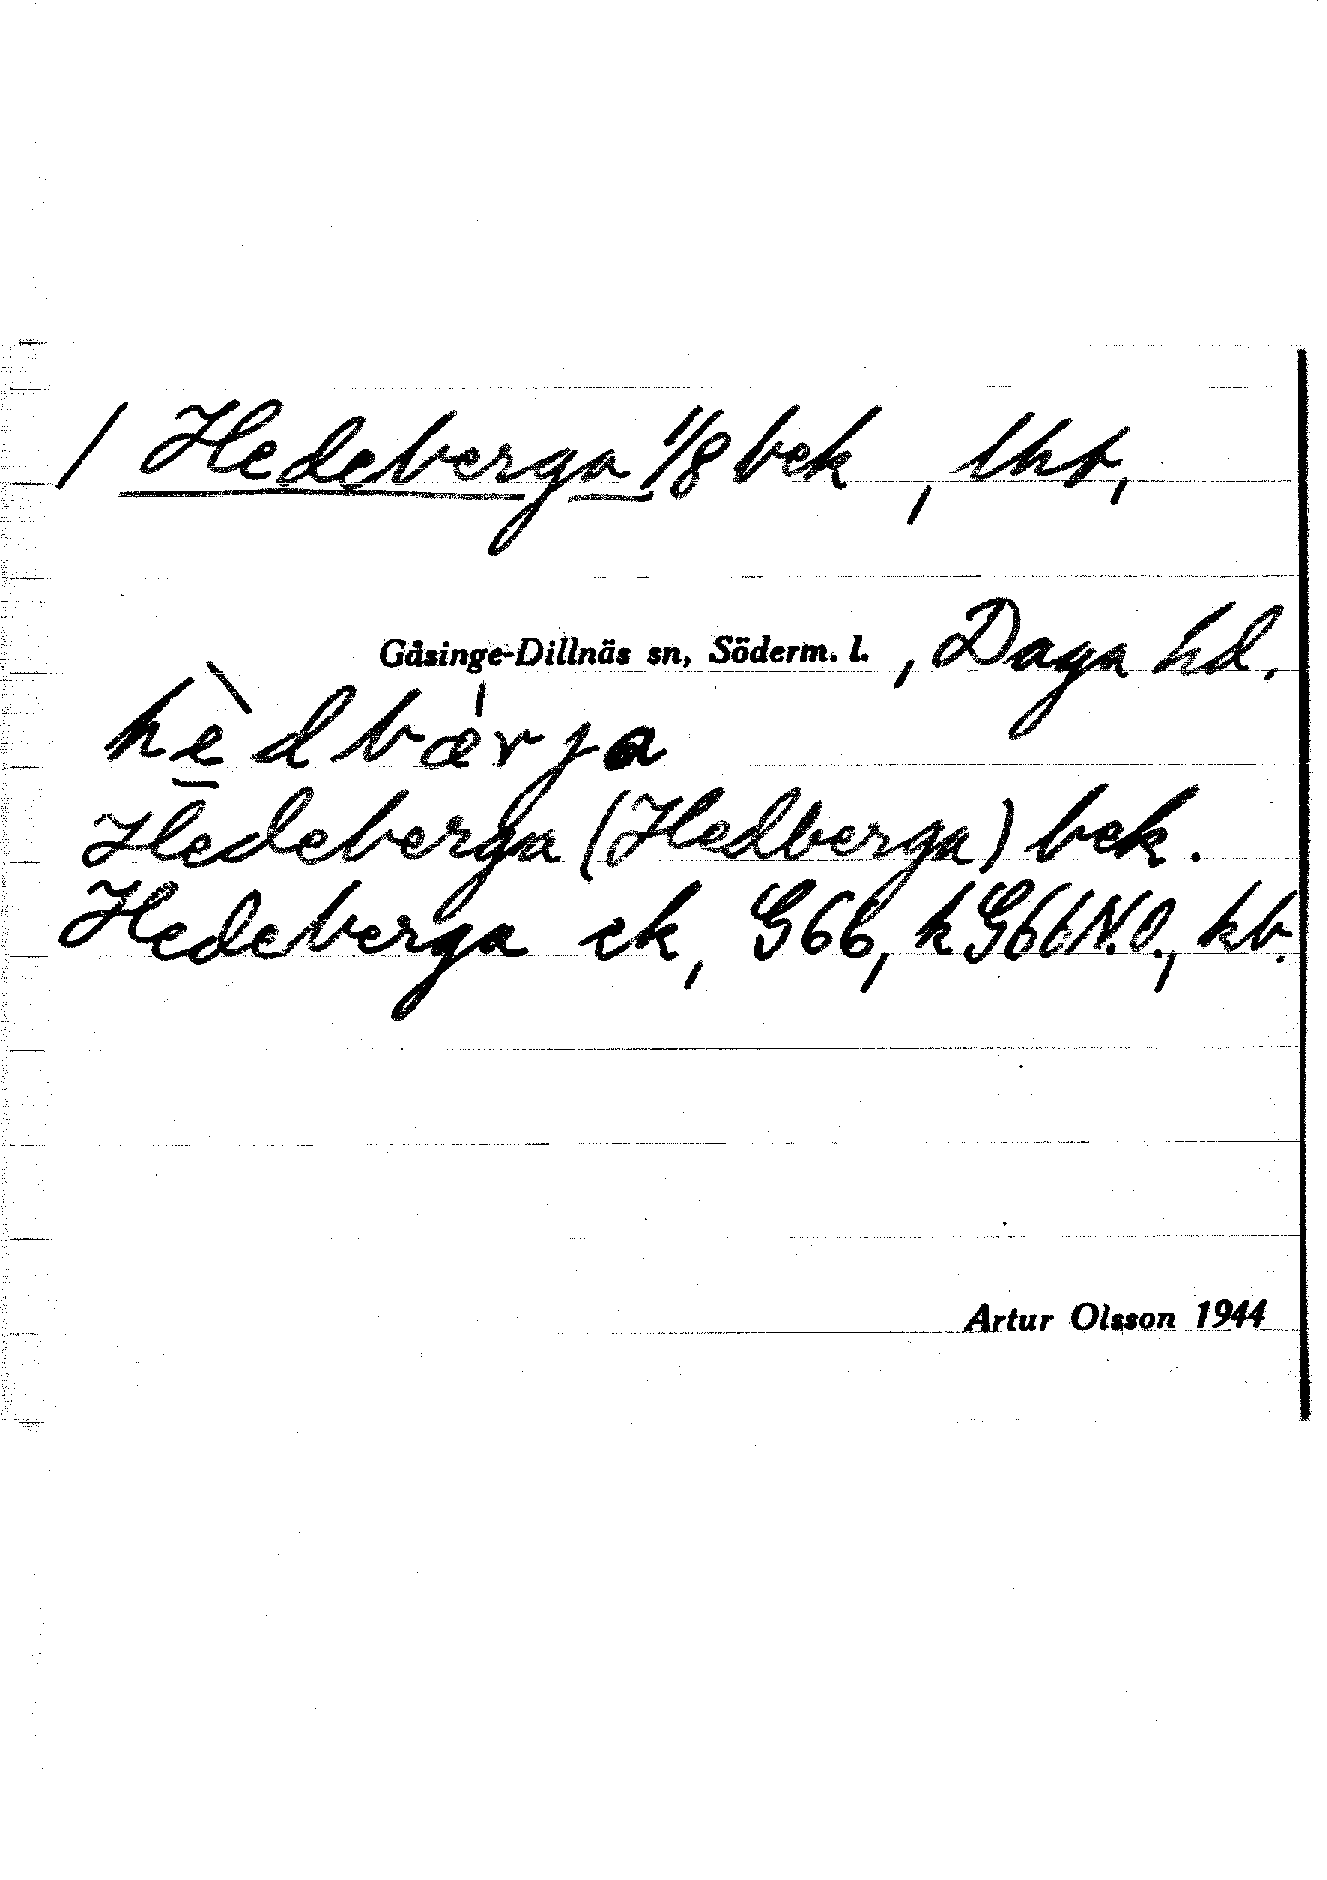 / Hedeberga 1/8 bek, lht,
Gåsinge-Dillnäs sn, Söderm. l., Daga hd.
hèdbærja
Hedeberga (Hedberga) bek.
Hedeberga ek, G66, kG66N.O., kb.
Artur Olsson 1944